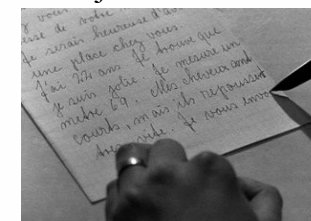 z vous
esse de votre
je serais heureuse d'av
une place chez vous.
J'ai 22 ans. Je trouve que
je suis jolie. Je mesure un
metre 69. Mes cheveux sont
courts, mais ils repoussent
très vite. Je vous envo